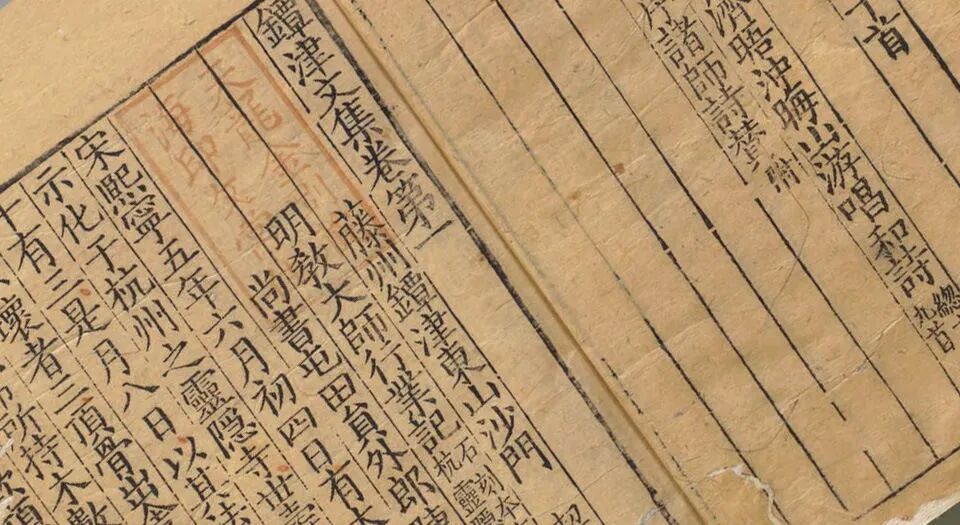 首
濟晤沖晦山游唱和詩 總九首
諸師詩贊 附
鐔津文集卷第一
藤州鐔津東山沙門契
明教大師行業記 石刻本杭靈隱
尚書屯田員外郎陳
宋熙寧五年六月初四日有大
示化于杭州之靈隱寺丗壽
十有三是月八日以其法
壞者三頂骨出舍
所持木數
天龍金剛
海印文常